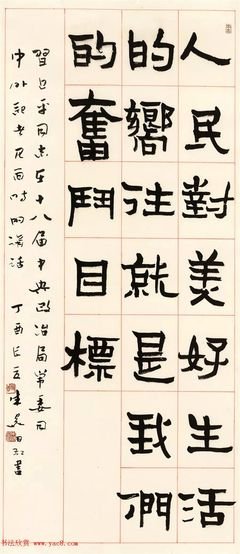 人民對美好生活
的嚮往就是我們
的奮鬥目標
習近平同志在十八届中央政治局常委同
中外記者見面時的講话 丁酉 書
书法欣赏 www.yac8.com